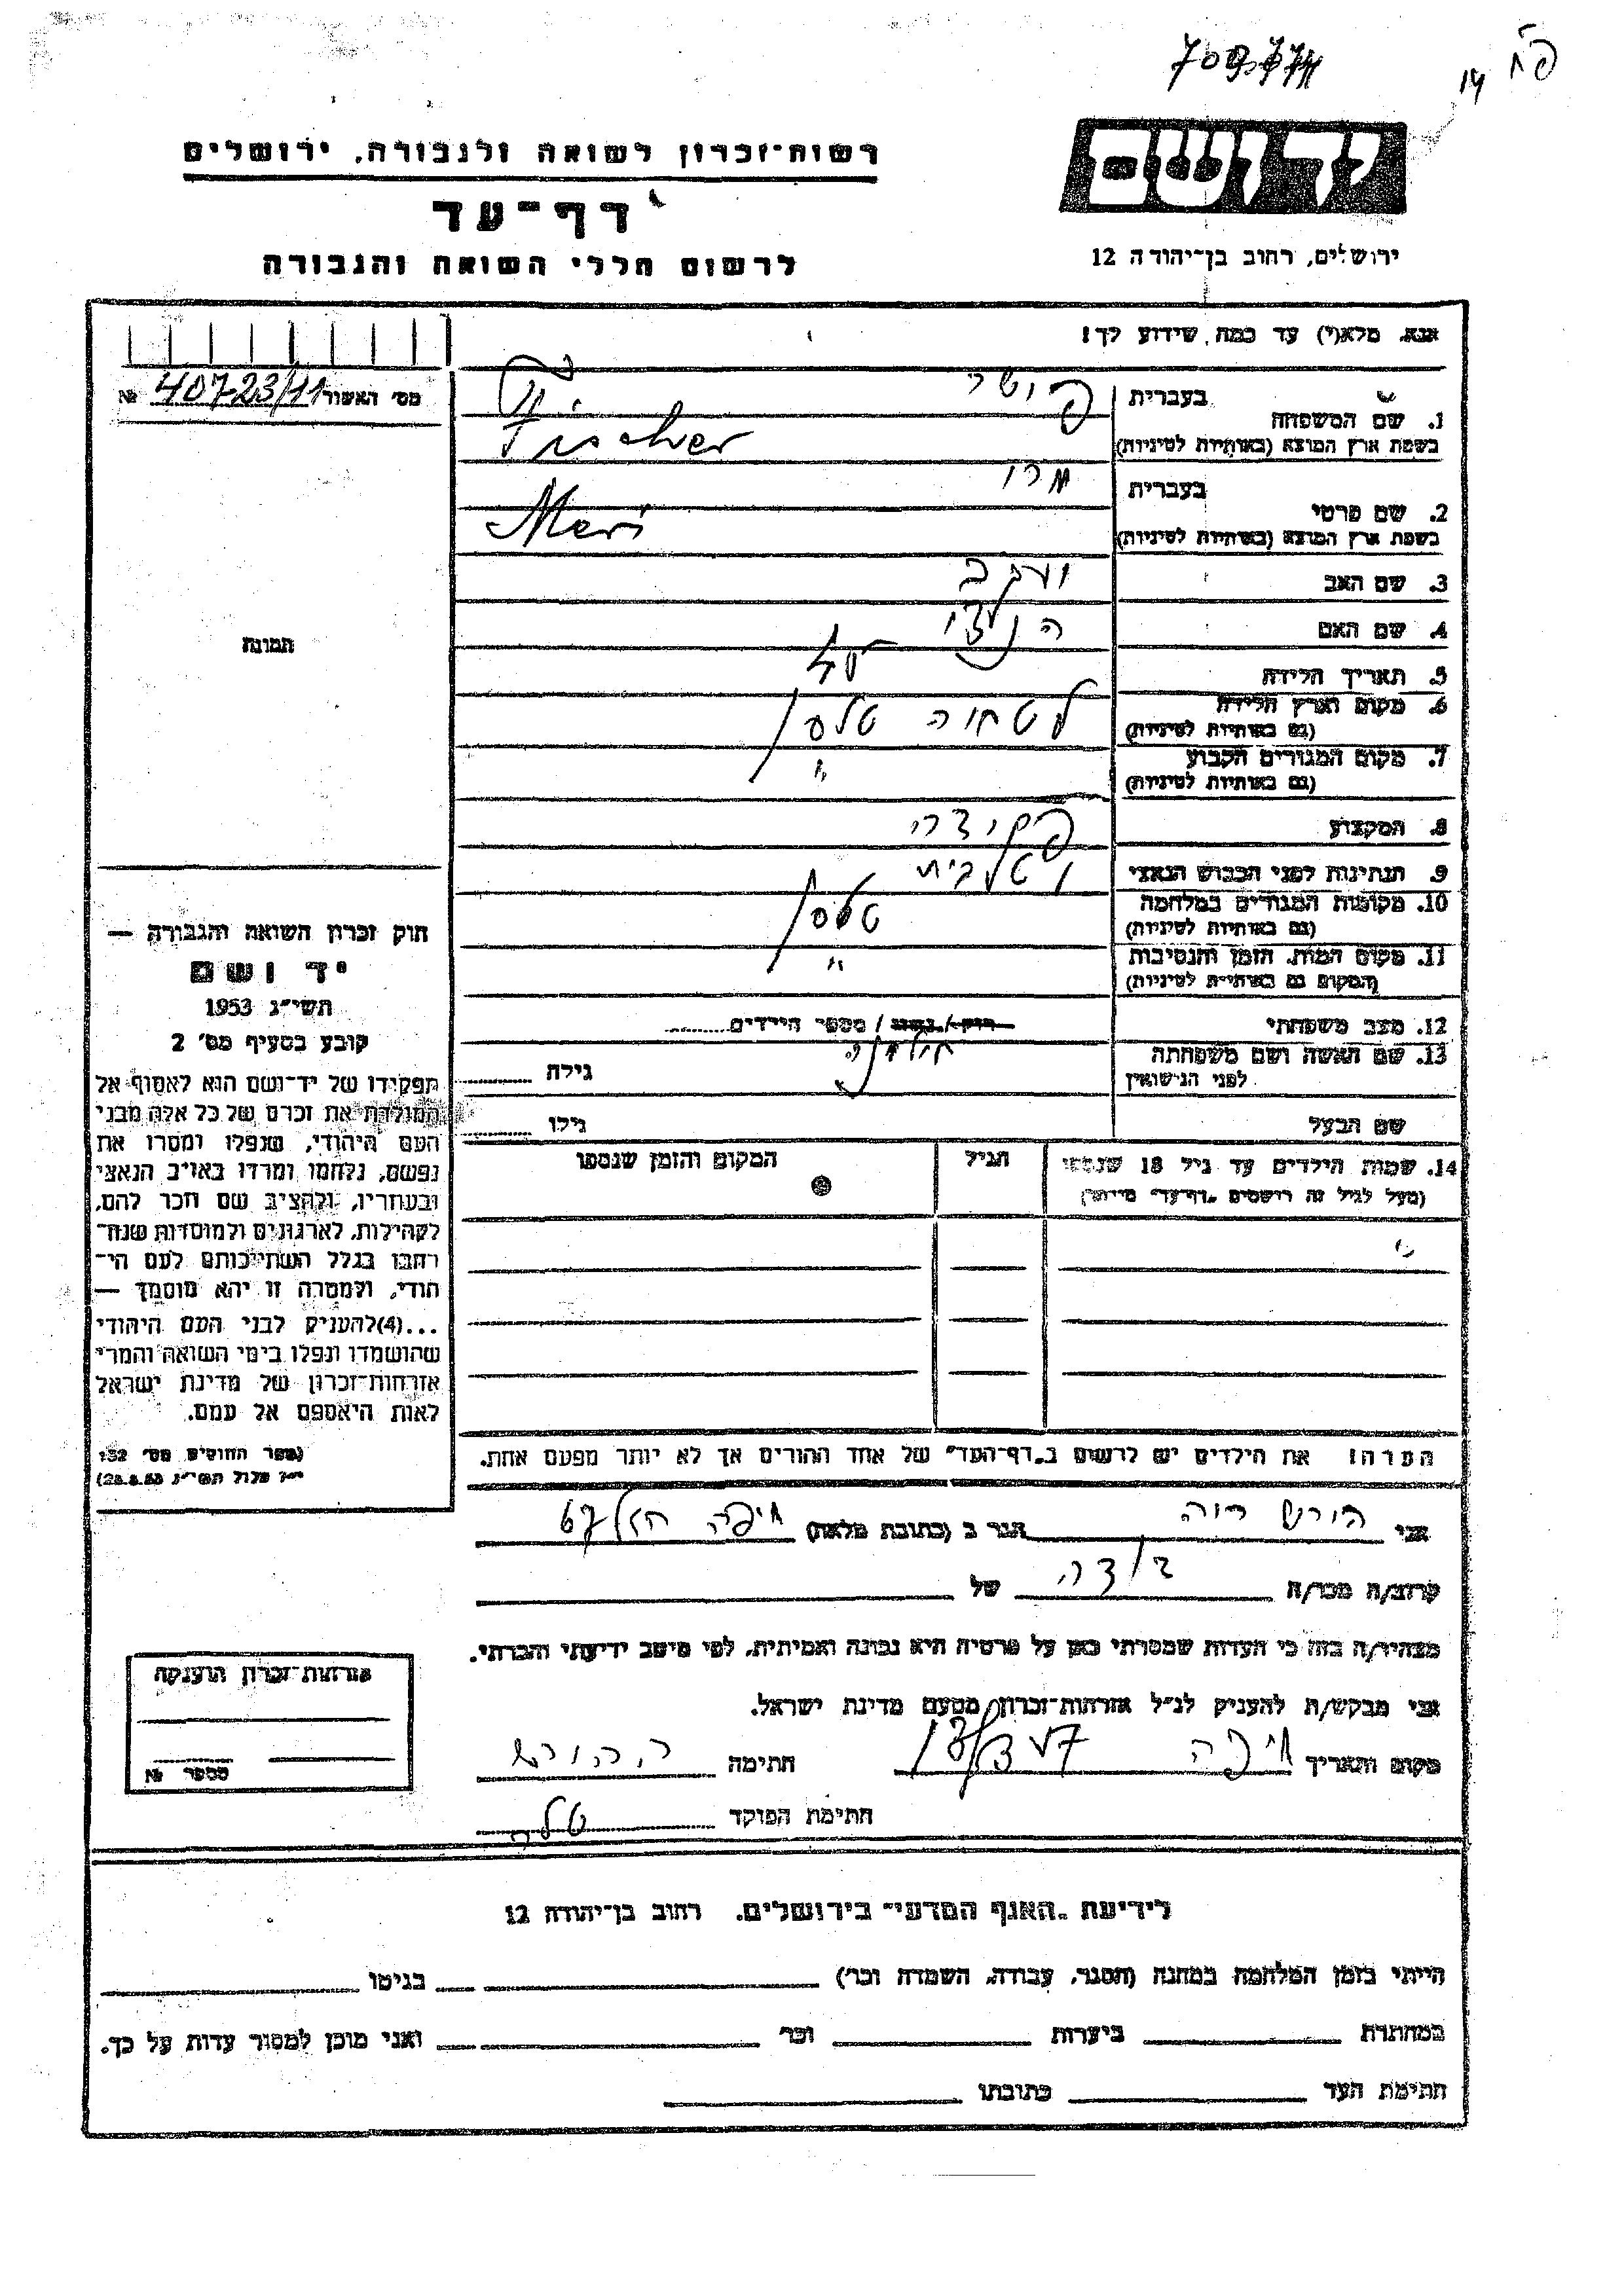 רשות-זכרון לשואה ולגבורה, ירושלים
דף-עד
לרשום חללי השואה והגבורה
יד ושם
ירושלים, רחוב בן-יהודה 12
אנא, מלא(י) עד כמה שידוע לך!
מס' האשור 40723/11 №
בעברית פישר
1. שם המשפחה
בשפת ארץ המוצא (באותיות לטיניות) Fischer
בעברית
2. שם פרטי
בשפת ארץ המוצא (באותיות לטיניות) Meri
3. שם האב יעקב
4. שם האם
5. תאריך הלידה
6. מקום וארץ הלידה
(גם באותיות לטיניות)
7. מקום המגורים הקבוע "
(גם באותיות לטיניות)
8. המקצוע פקידה
9. הנתינות לפני הכבוש הנאצי
10. מקומות המגורים במלחמה
(גם באותיות לטיניות)
11. מקום המות, הזמן והנסיבות "
(המקום גם באותיות לטיניות)
12. מצב משפחתי רוק/נשוי / מספר הילדים
13. שם האשה ושם משפחתה
לפני הנישואין
גילה
שם הבעל גילו
14. שמות הילדים עד גיל 18 שנספו הגיל המקום והזמן שנספו
(מעל לגיל זה רושמים "דף-עד" מיוחד)
תמונה
חוק זכרון השואה והגבורה —
יד ושם
תשי"ג 1953
קובע בסעיף מס' 2
תפקידו של יד-ושם הוא לאסוף אל
המולדת את זכרם של כל אלה מבני
העם היהודי, שנפלו ומסרו את
נפשם, נלחמו ומרדו באויב הנאצי
ובעוזריו, ולהציב שם וזכר להם,
לקהילות, לארגונים ולמוסדות שנח-
רחבו בגלל השתייכותם לעם הי-
הודי, ולמטרה זו יהא מוסמך —
...(4)להעניק לבני העם היהודי
שהושמדו ונפלו בימי השואה והמרי
אזרחות-זכרון של מדינת ישראל
לאות היאספם אל עמם.
(ספר החוקים מס' 132
י"ז אלול תשי"ג 28.8.53)
הערה! את הילדים יש לרשום ב"דף-העד" של אחד ההורים אך לא יותר מפעם אחת.
אני הירש רוזה הגר ב (כתובת מלאה) חיפה
קרוב/ה מכר/ה דודה של
מצהיר/ה בזה כי העדות שמסרתי כאן על פרטיה היא נכונה ואמיתית, לפי מיטב ידיעתי והכרתי.
אני מבקש/ת להעניק לנ"ל אזרחות-זכרון מטעם מדינת ישראל.
מקום ותאריך חיפה חתימה
חתימת הפוקד
אזרחות-זכרון הוענקה
מספר №
לידיעת "האגף המדעי" בירושלים, רחוב בן-יהודה 12
הייתי בזמן המלחמה במחנה (הסגר, עבודה, השמדה וכו') בגיטו
במחתרת ביערות וכו' ואני מוכן למסור עדות על כך.
חתימת העד כתובתו